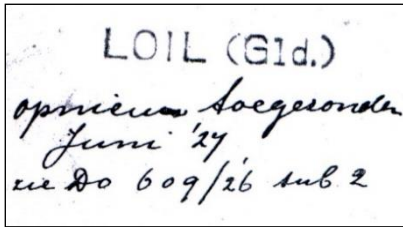 LOIL (Gld.)
opnieuw toegezonden
Juni '27
zie Do 609/26 sub 2